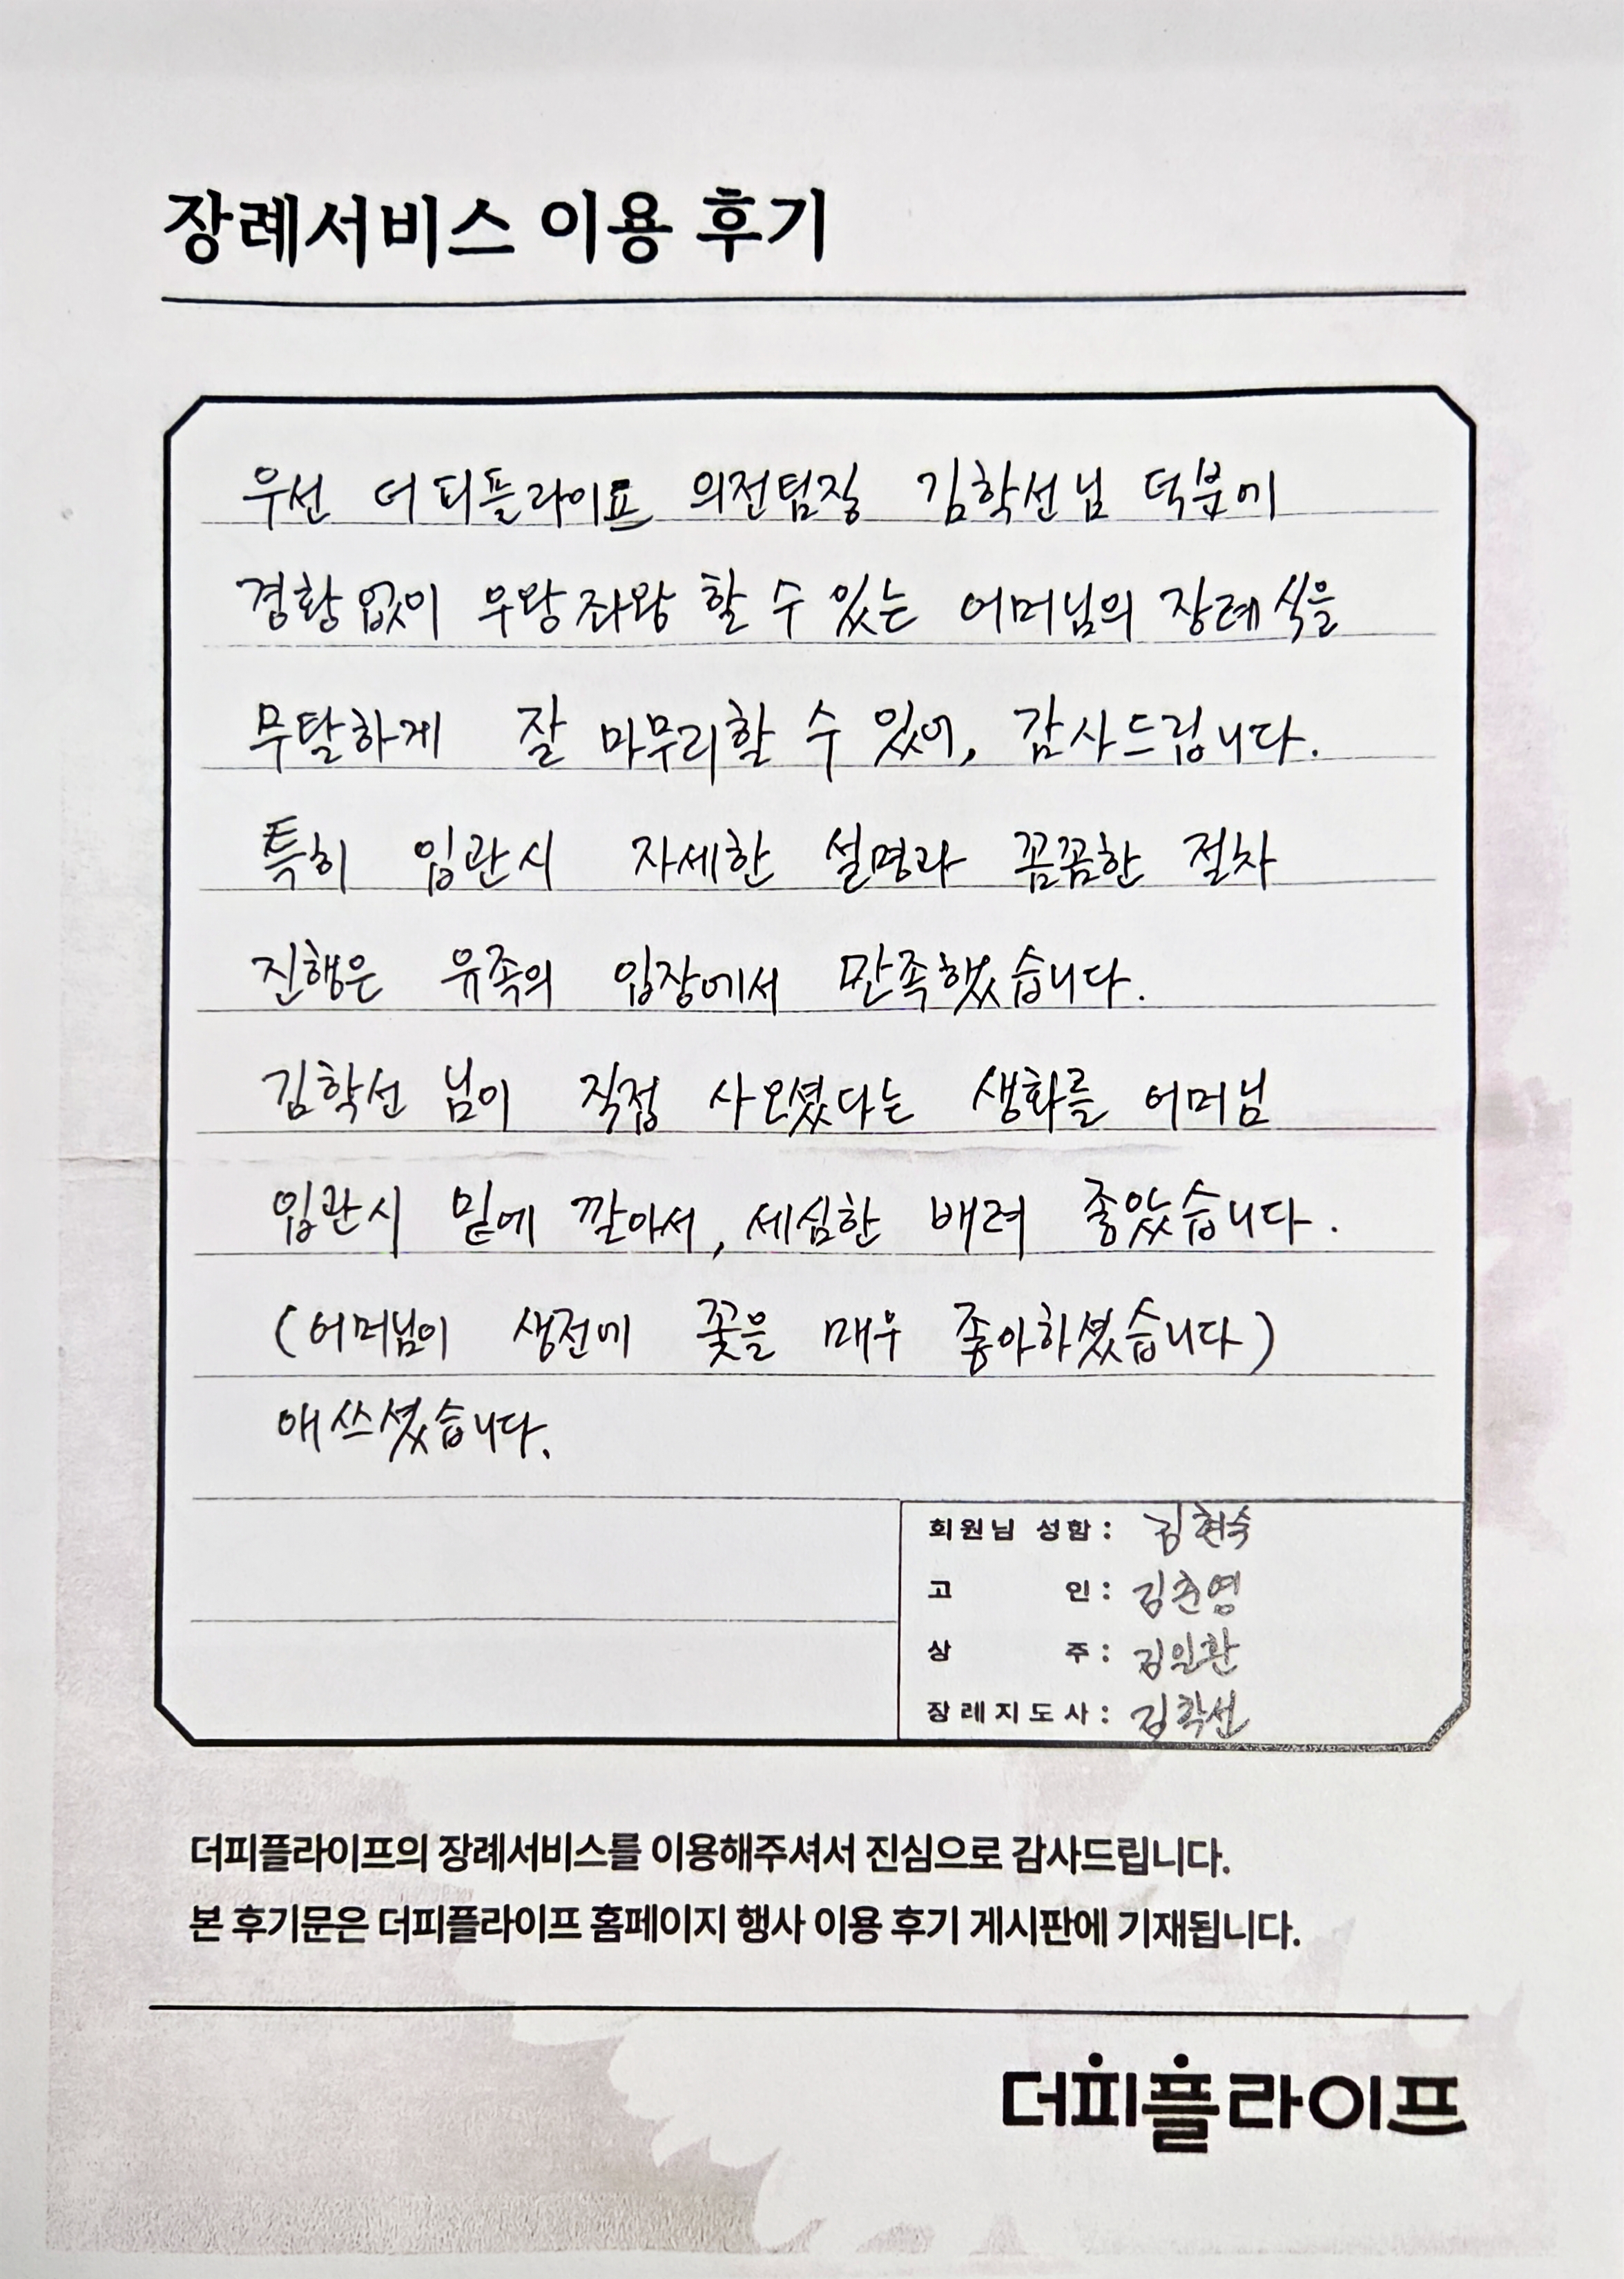 장례서비스 이용 후기
우선 더피플라이프 의전팀장 김학선님 덕분에
경황없이 우왕좌왕 할 수 있는 어머님의 장례식을
무탈하게 잘 마무리할 수 있어, 감사드립니다.
특히 입관시 자세한 설명과 꼼꼼한 절차
진행은 유족의 입장에서 만족했습니다.
김학선 님이 직접 사오셨다는 생화를 어머님
입관시 밑에 깔아서, 세심한 배려 좋았습니다.
(어머님이 생전에 꽃을 매우 좋아하셨습니다)
애쓰셨습니다.
회원님 성함: 김현숙
고 인: 김춘영
상 주: 김인환
장례지도사: 김학선
더피플라이프의 장례서비스를 이용해주셔서 진심으로 감사드립니다.
본 후기문은 더피플라이프 홈페이지 행사 이용 후기 게시판에 기재됩니다.
더피플라이프